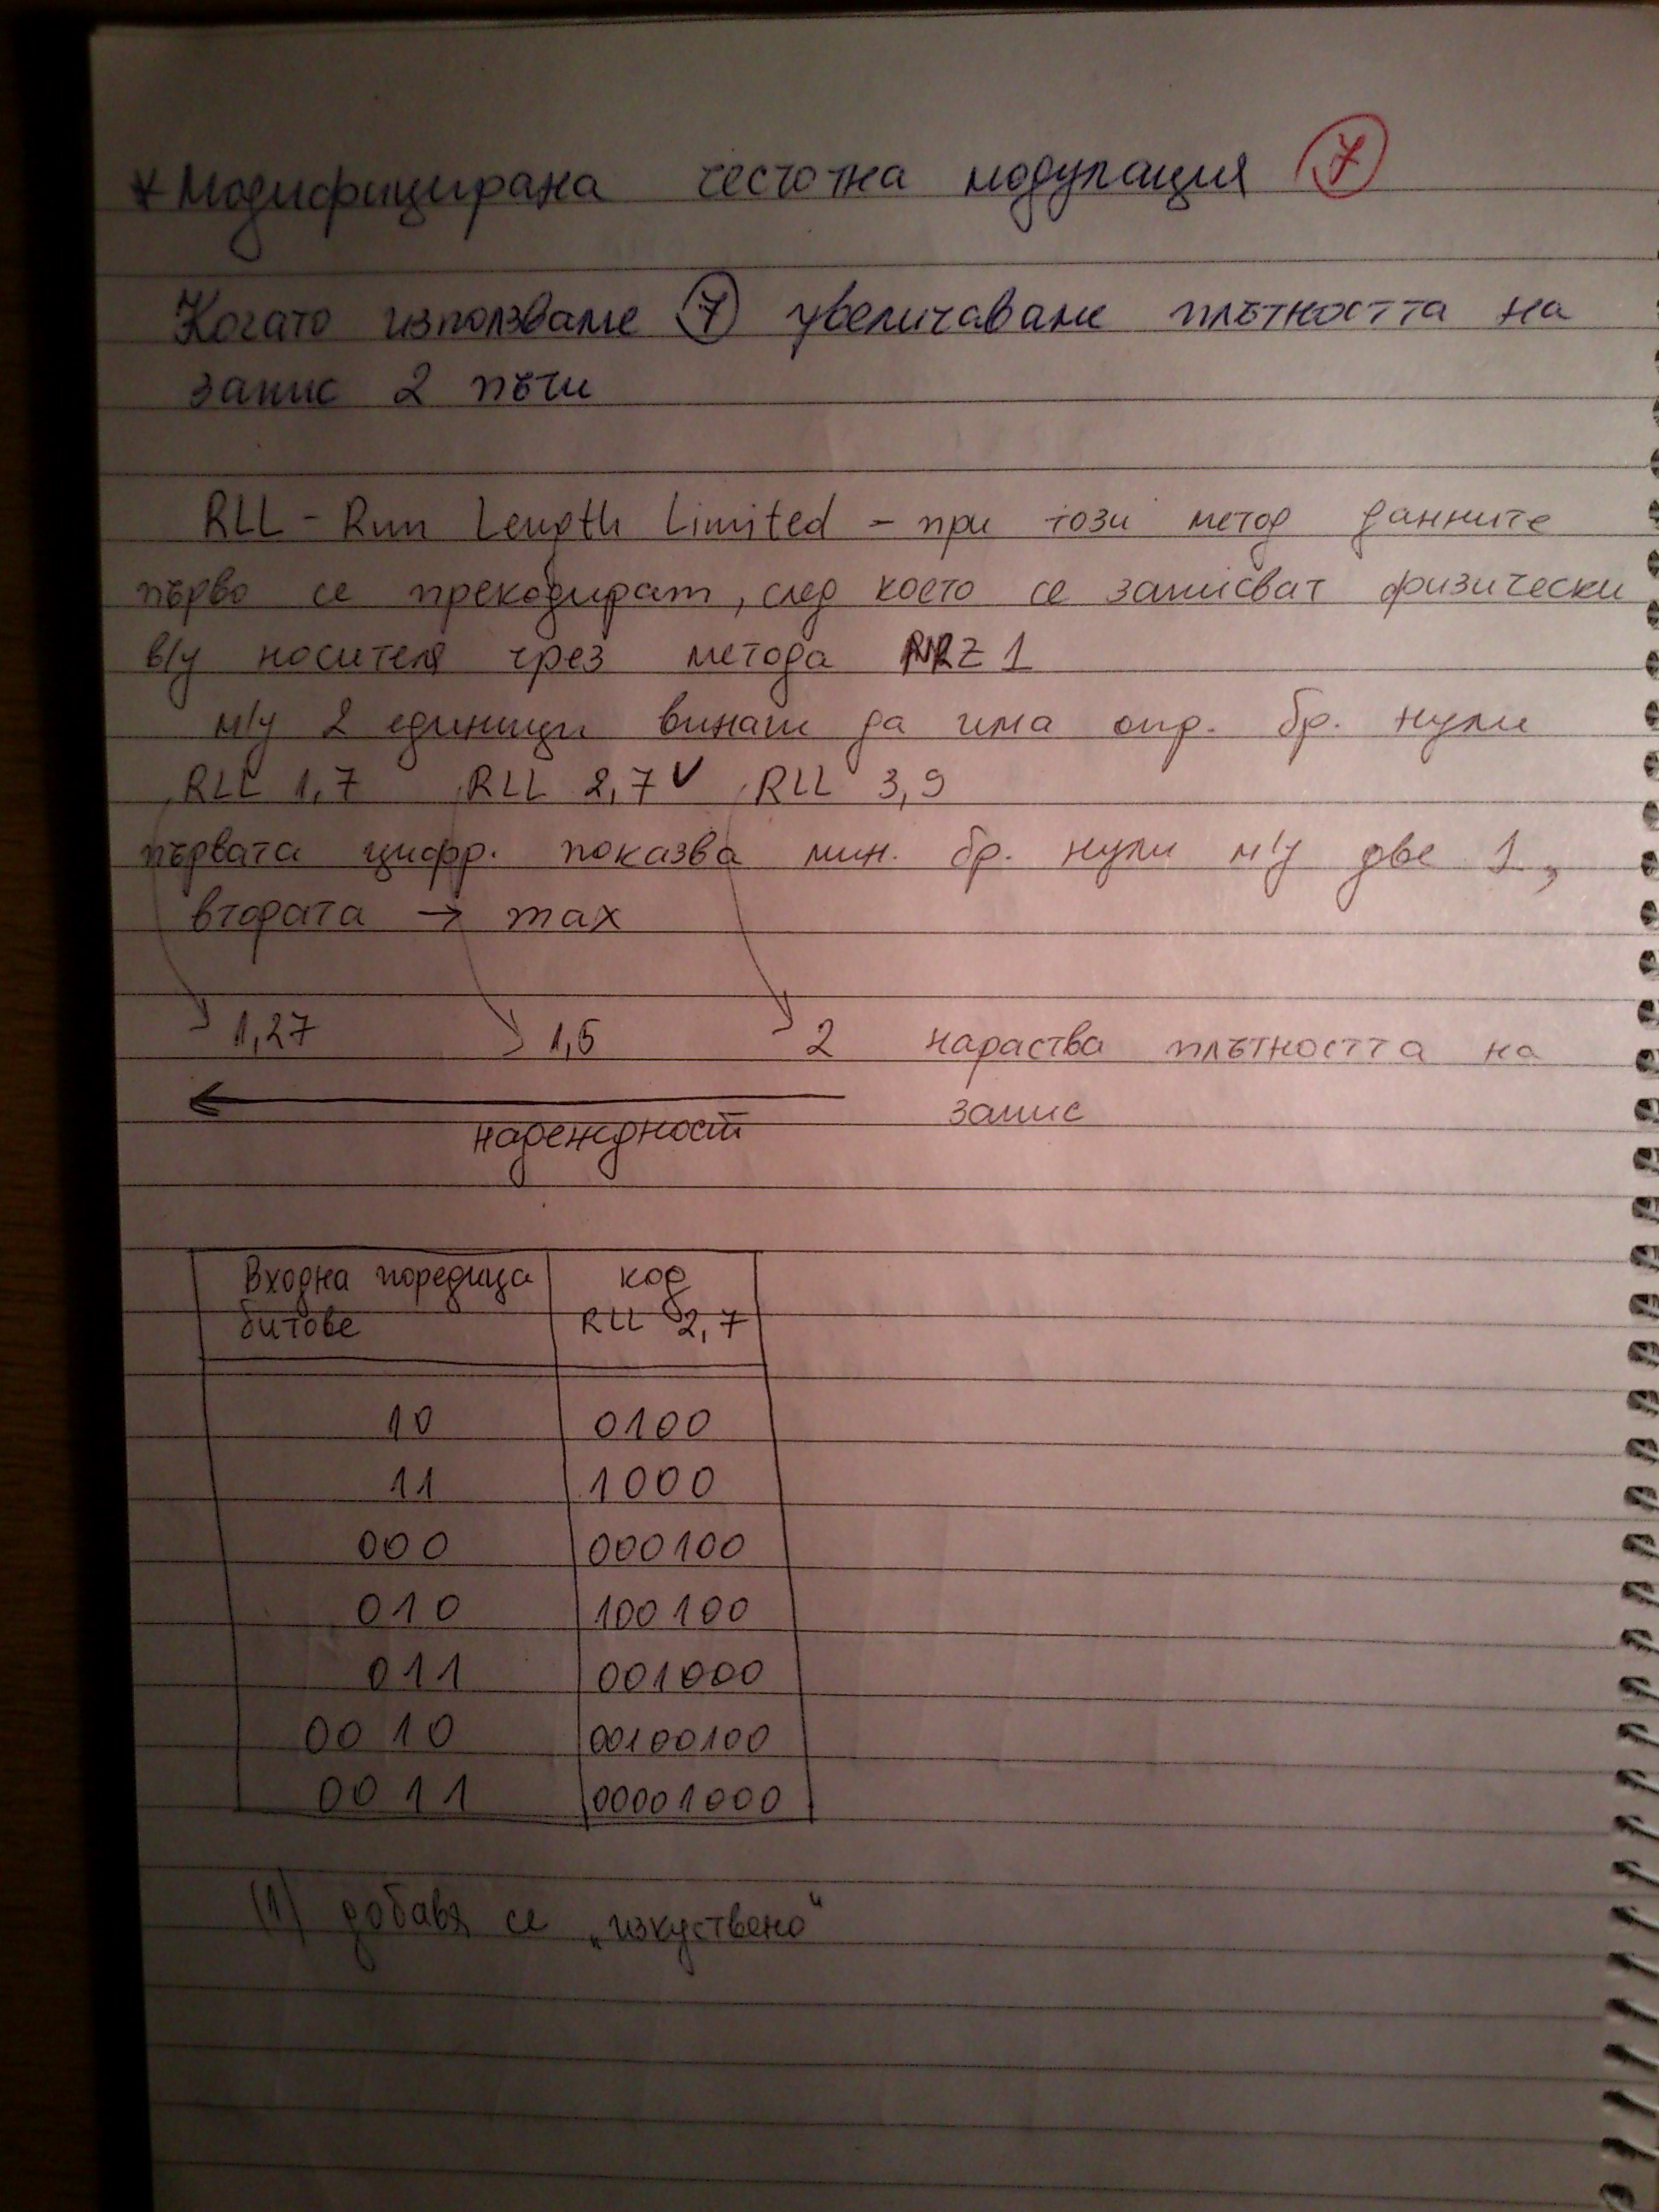 * Модифицирана честотна модулация 7
Когато използваме 7 увеличаваме плътността на
запис 2 пъти
RLL - Run Length Limited - при този метод данните
първо се прекодират, след което се записват физически
в/у носителя чрез метода NRZ 1
м/у 2 единици винаги да има опр. бр. нули
RLL 1,7 RLL 2,7 ✓ RLL 3,9
първата цифр. показва мин. бр. нули м/у две 1,
втората → max
1,27 1,5 2 нараства плътността на
запис
надеждност
Входна поредица битове код RLL 2,7
10 0100
11 1000
000 000100
010 100100
011 001000
0010 00100100
0011 00001000
(1) добавя се „изкуствено“